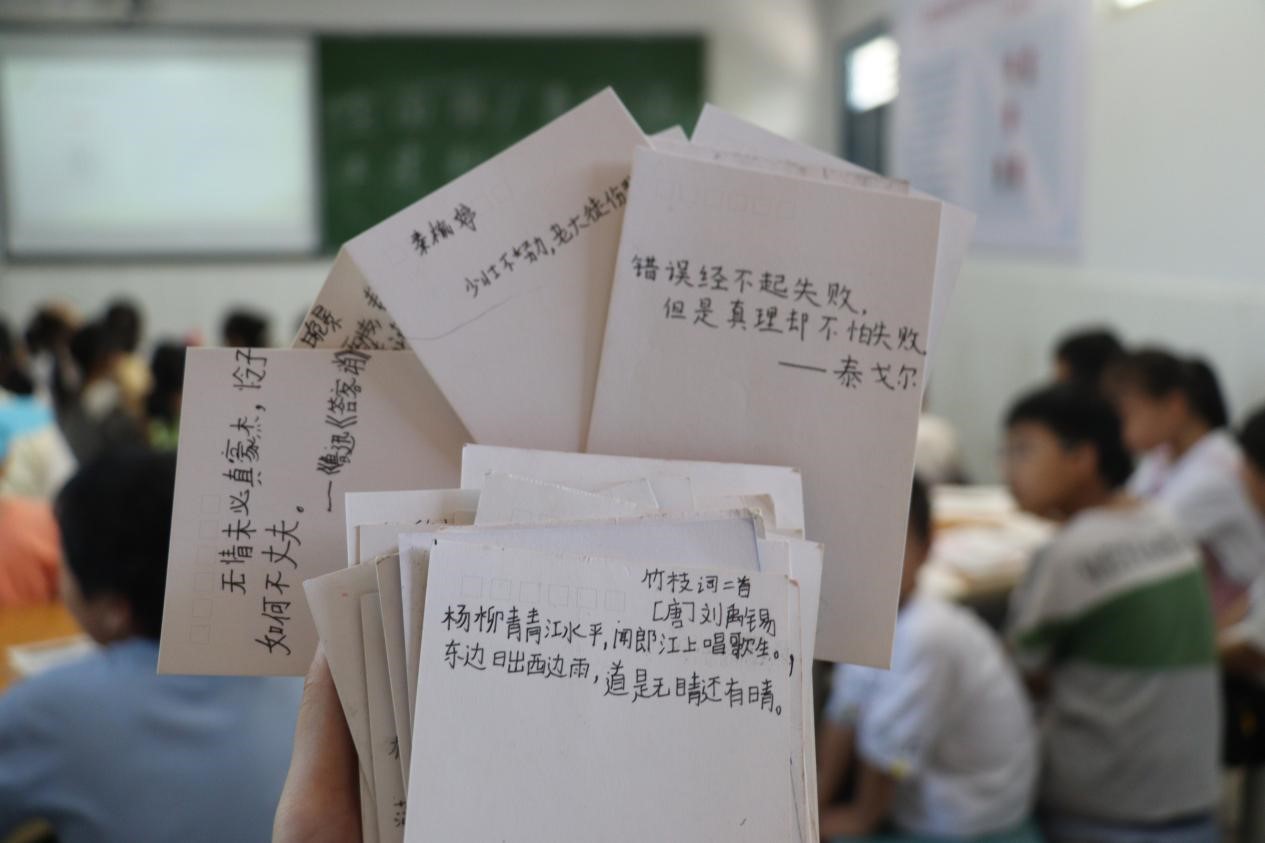 少壮不努力,老大徒伤
错误经不起失败,
但是真理却不怕失败
——泰戈尔
无情未必真豪杰,怜子
如何不丈夫。
——鲁迅《答客诮》
竹枝词二首
[唐]刘禹锡
杨柳青青江水平,闻郎江上唱歌生。
东边日出西边雨,道是无晴还有晴。